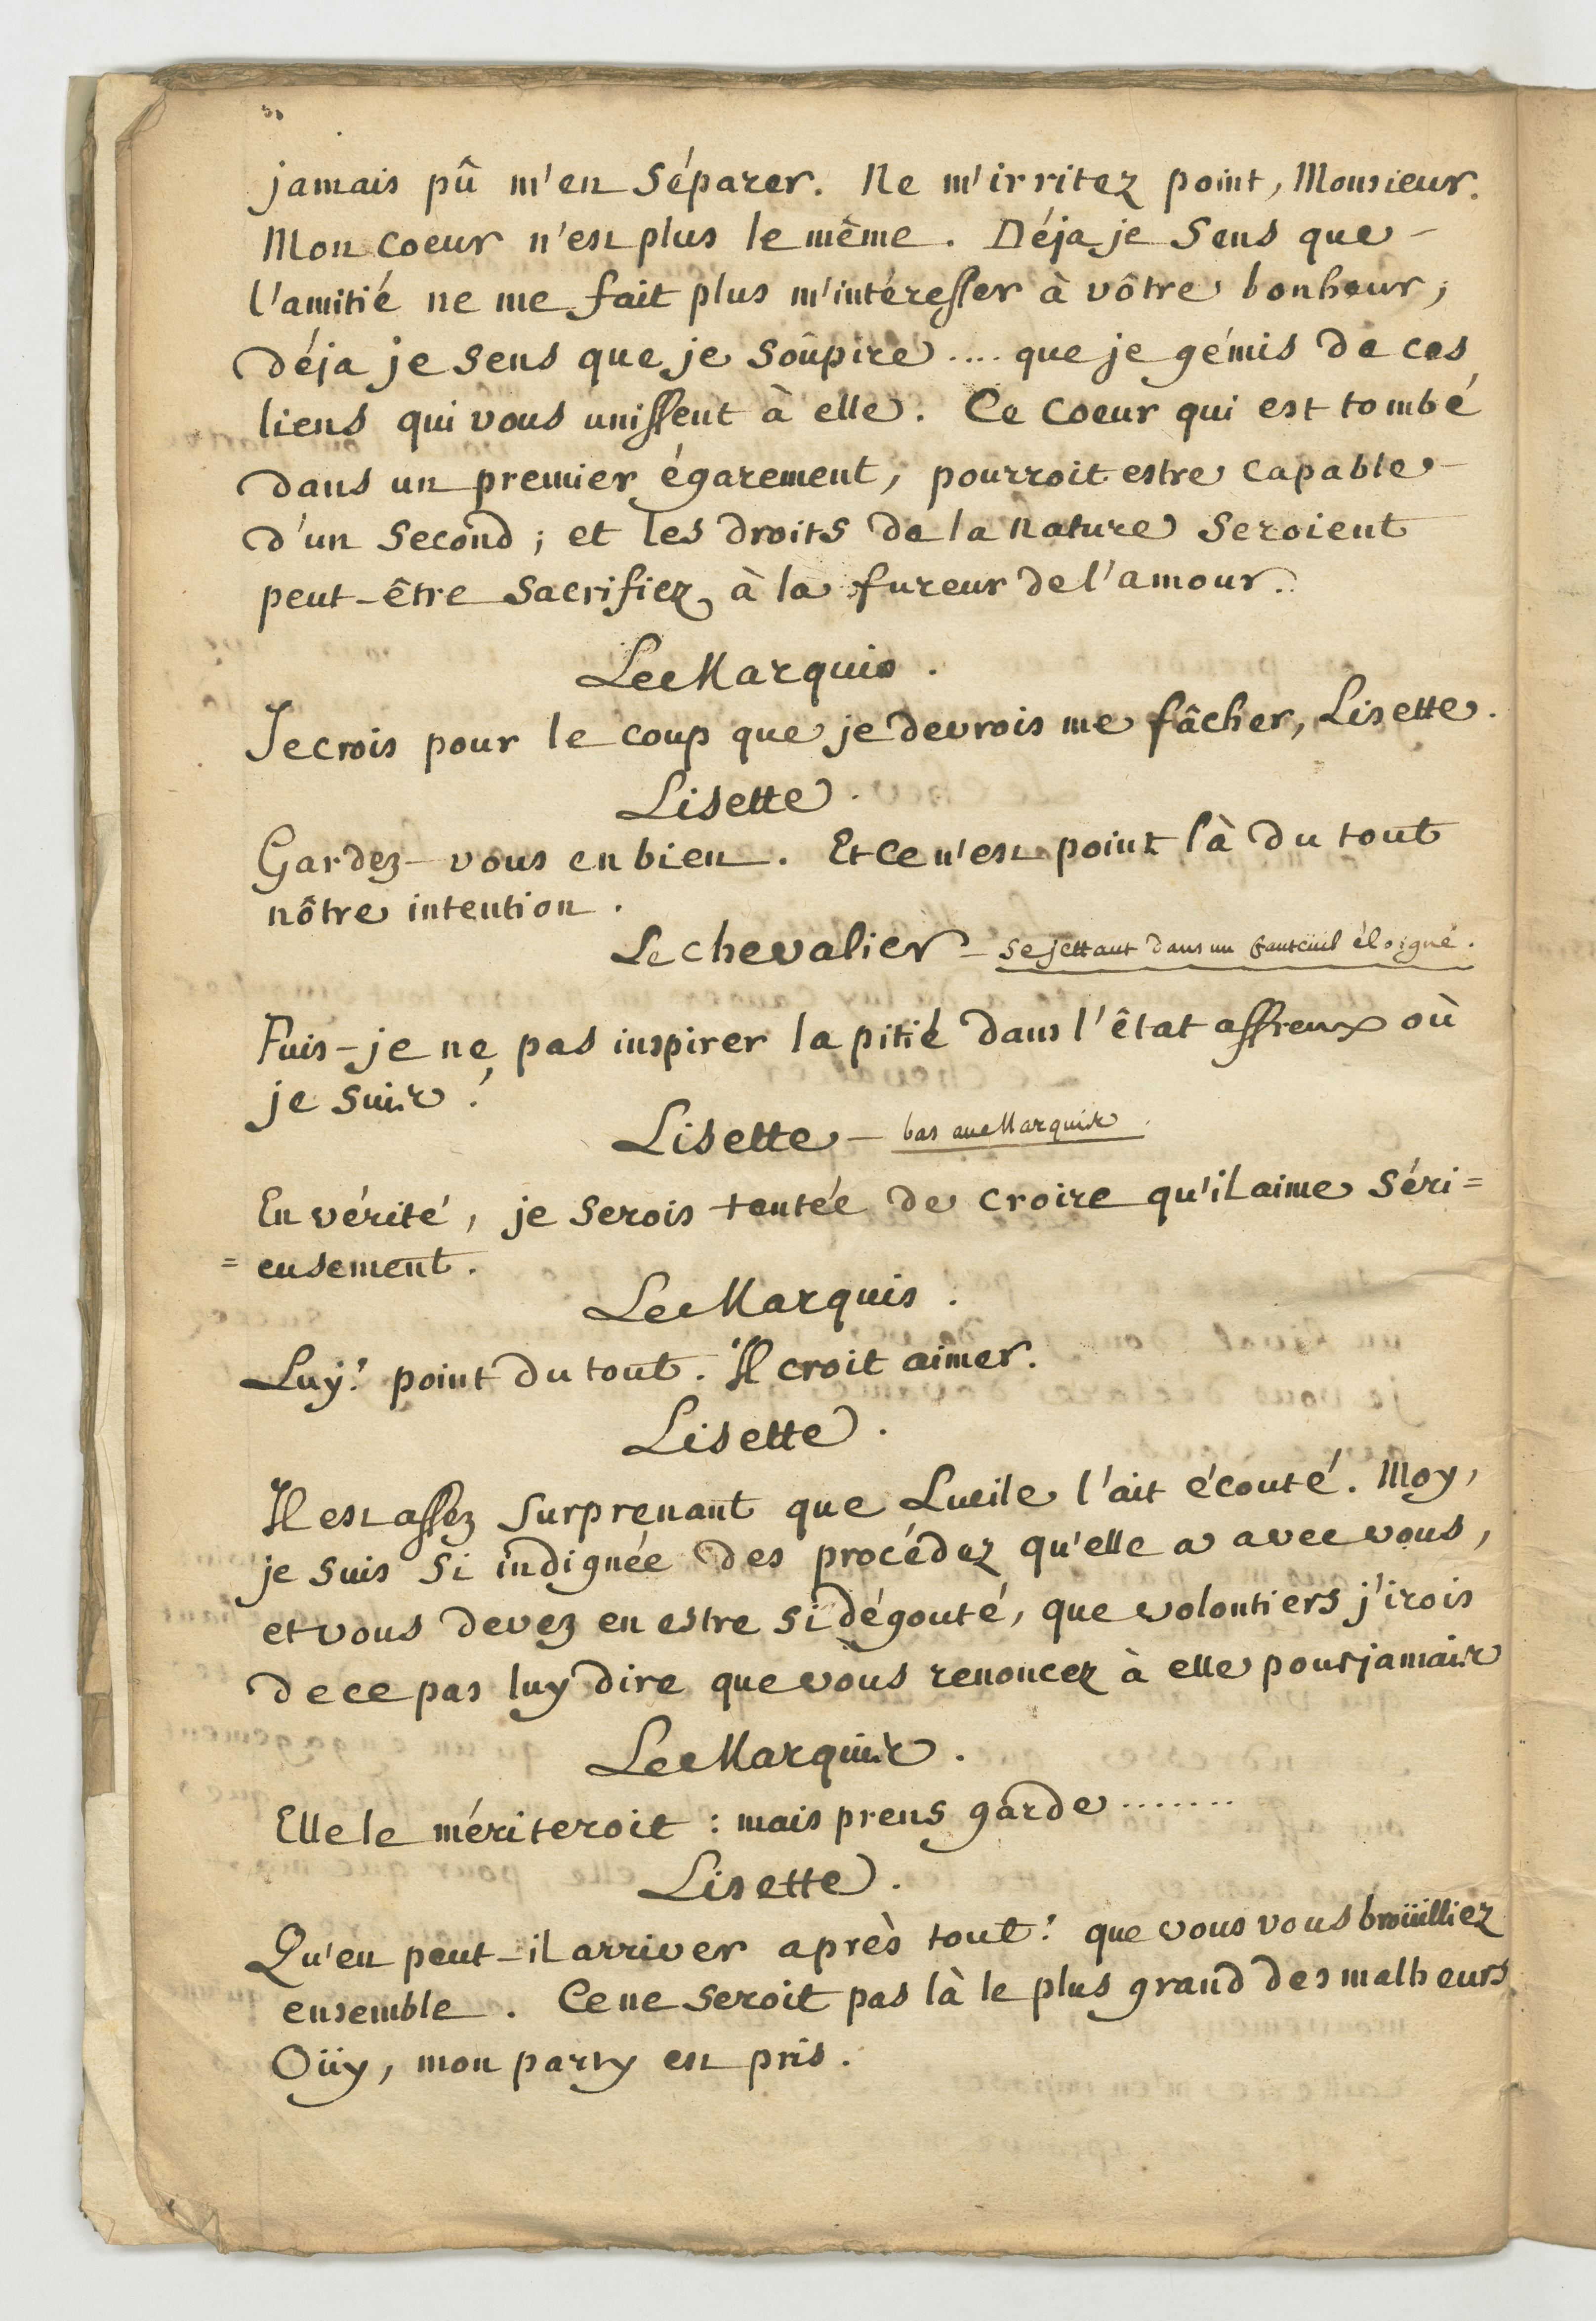 jamais pû m'en séparer. Ne m'irritez point, Monsieur.
Mon coeur n'est plus le même. Déja je sens que
l'amitié ne me fait plus m'intéresser à vôtre bonheur,
déja je sens que je soûpire.... que je gémis de ces
liens qui vous unissent à elle. Ce coeur qui est tombé
dans un premier égarement, pourroit estre capable
d'un second ; et les droits de la nature seroient
peut-être sacrifiez à la fureur de l'amour.
Le Marquis.
Je crois pour le coup que je devrois me fâcher, Lisette.
Lisette.
Gardez-vous en bien. Et ce n'est point là du tout
nôtre intention.
Le chevalier - se jettant dans un fauteüil éloigné.
Puis-je ne pas inspirer la pitié dans l'êtat affreux où
je suis !
Lisette - bas au Marquis.
En vérité, je serois tentée de croire qu'il aime séri=
=eusement.
Le Marquis.
Luy? point du tout. Il croit aimer.
Lisette.
Il est assez surprenant que Lucile l'ait écouté. Moy,
je suis si indignée des procédez qu'elle a avec vous,
et vous devez en estre si dégouté, que volontiers j'irois
de ce pas luy dire que vous renoncez à elle pour jamais
Le Marquis.
Elle le mériteroit : mais prens garde.......
Lisette.
Qu'en peut-il arriver après tout? que vous vous broüilliez
ensemble. Ce ne seroit pas là le plus grand des malheurs.
Oüy, mon party est pris.